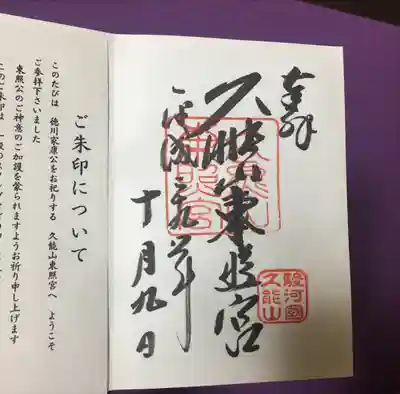 奉拝
久能山東照宮
平成二九年
十月九日
東照宮
駿河國
久能山
ご朱印について
このたびは 徳川家康公をお祀りする 久能山東照宮へ ようこそ
ご参拝下さいました
東照公のご神意のご加護を蒙られますようお祈り申し上げます